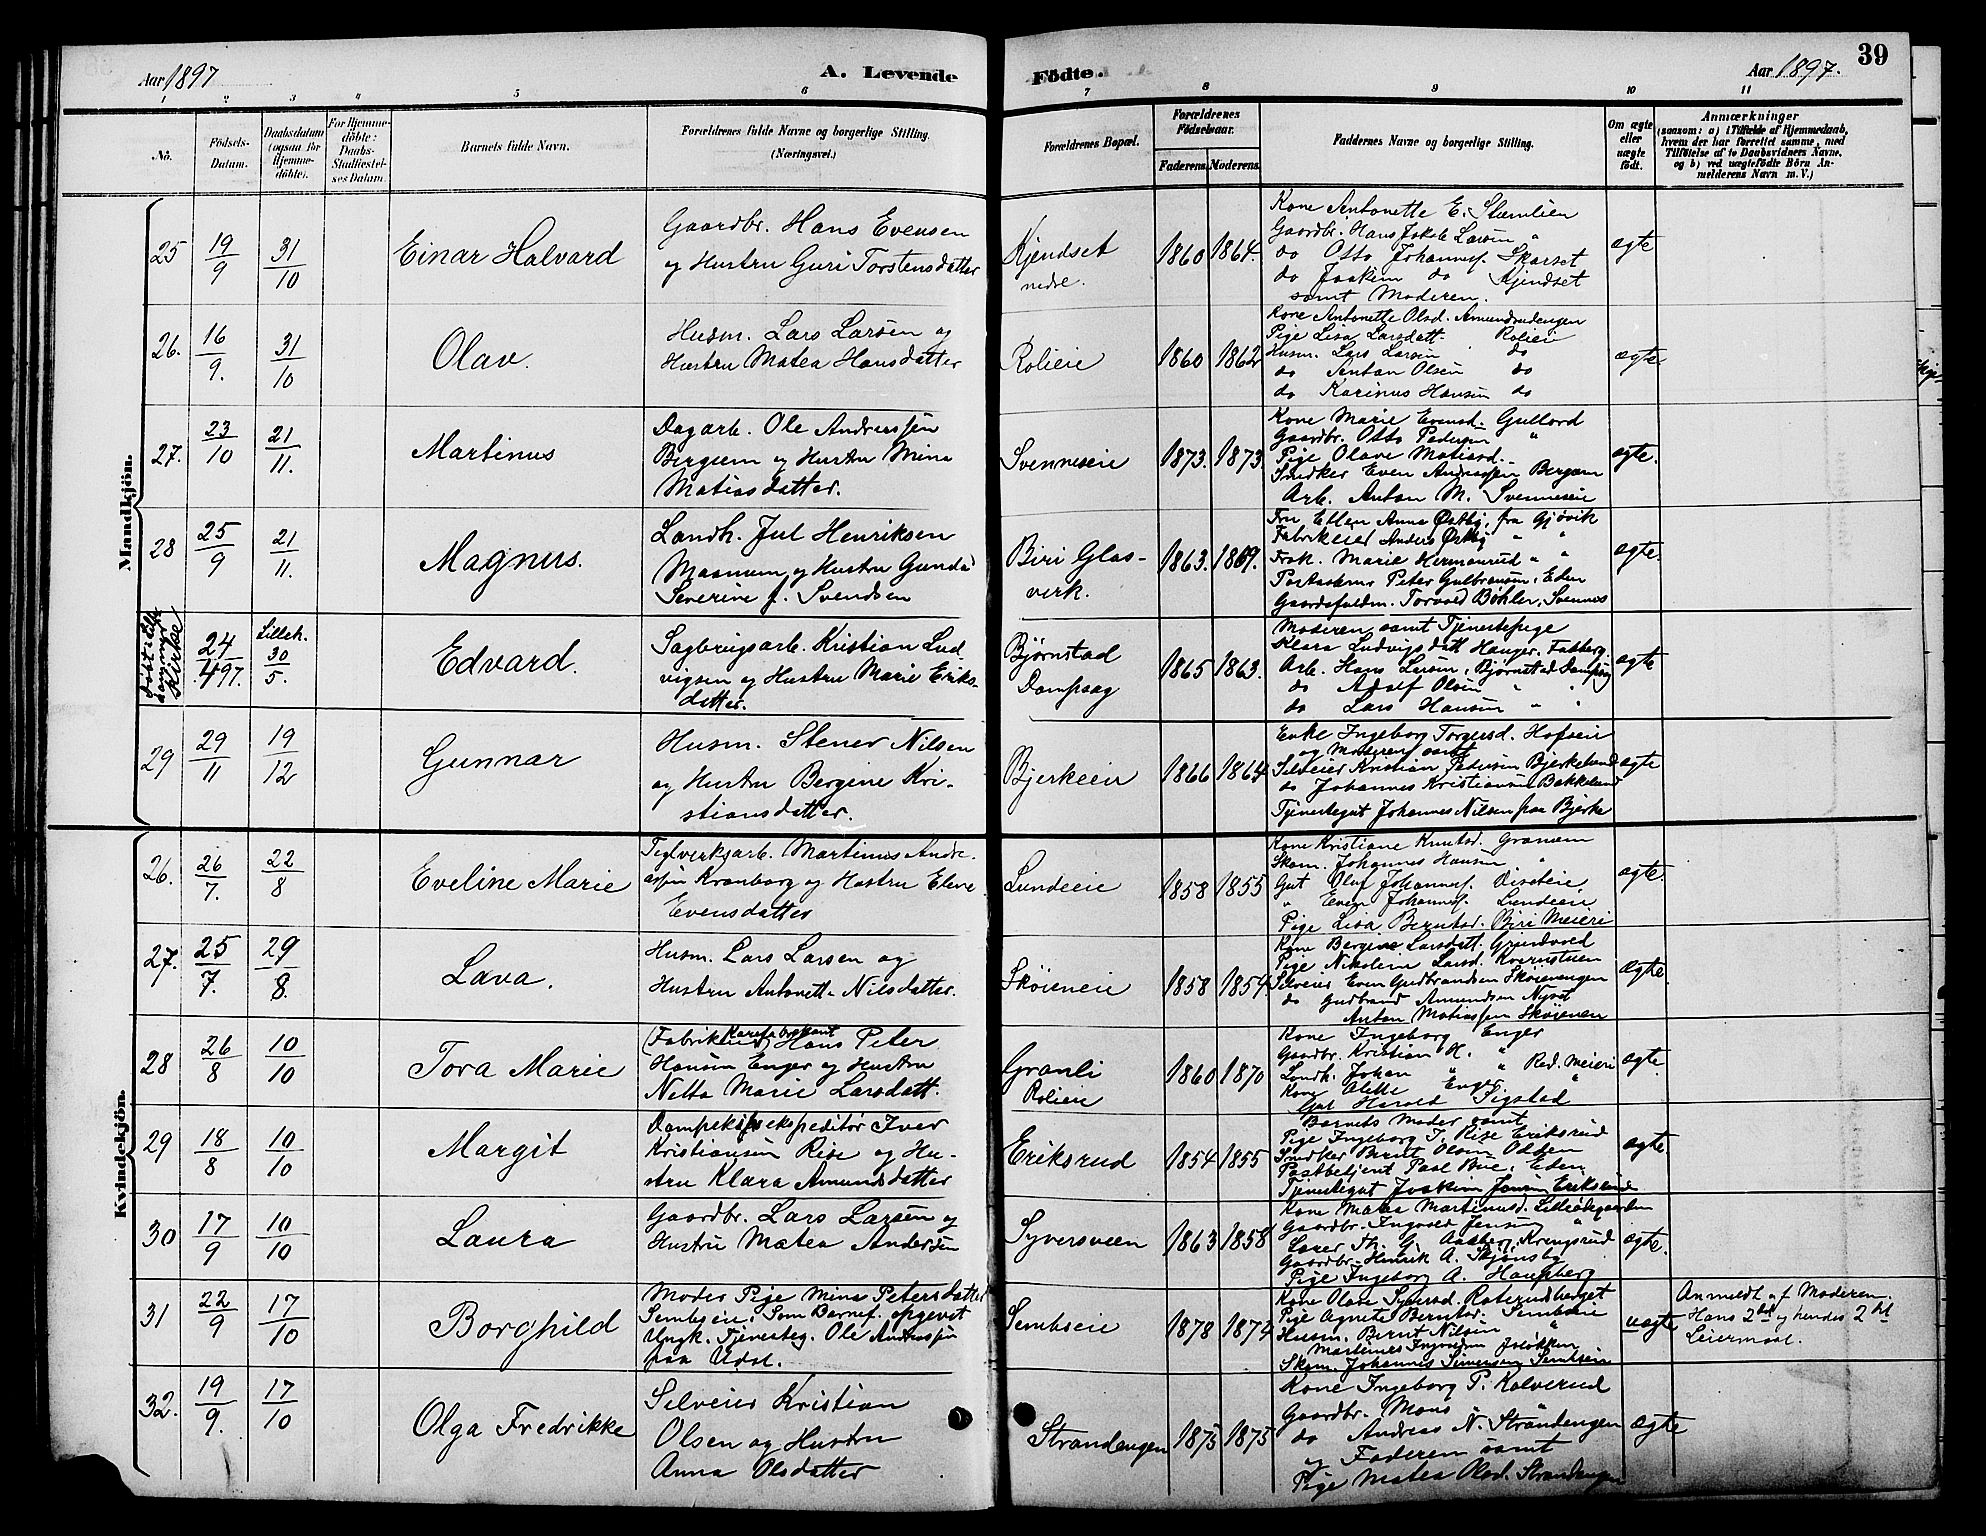 39
Aar 1897
A. Levende
Födte.
Aar 1897.
1 2 3 4 5 6 7 8 9 10 11
No.
Födsels-
Datum.
Daabsdatum
(ogsaa for
Hjemme-
döbte).
For Hjemme-
döbte:
Daabs-
Stadfæstel-
ses Datum.
Barnets fulde Navn.
Forældrenes fulde Navne og borgerlige Stilling.
(Næringsvei.)
Forældrenes Bopæl.
Forældrenes
Födselsaar.
Faderens. Moderens.
Faddernes Navne og borgerlige Stilling.
Om ægte
eller
uægte
födt.
Anmærkninger
(saasom: a) i Tilfælde af Hjemmedaab,
hvem der har forrettet samme, med
Tilföielse af to Daabsvidners Navne,
og b) ved uægtefödte Börn An-
melderens Navn m. V.)
Mandkjön.
25 19/9 31/10 Einar Halvard
Gaardbr. Hans Evensen
og Hustru Guri Torstensdatter
Kjendset
nedre.
1860 1864.
Kone Antonette E. Stærnlien
Gaardbr. Hans Jakob Larsen "
do Otto Johannesf. Skarset
do Joakim do Kjendset
samt Moderen.
ægte
26. 16/9. 31/10 Olav.
Husm. Lars Larsen og
Hustru Matea Hansdatter
Rolieie
1860 1862
Kone Antonette Olsd. Amundrudengen
Pige Lisa Larsdatt. Rolieie
Husm. Lars Larsen do
do Anton Olsen do
do Karinus Hansen do
ægte.
27. 23/10 21/11. Martinus
Dagarb. Ole Andreassen
Bergum og Hustru Mina
Matiasdatter.
Svenneseie
1873. 1873.
Kone Marie Evensd. Gullord
Gaardbr. Otto Pedersen "
Pige Olave Matiasd.
Snedker Even Andreassen Bergum
Arb. Anton M. Svenneseie
ægte.
28 25/9 21/11. Magnus.
Landh. Jul Henriksen
Maanum og Hustru Gunda
Severine f. Svendsen
Biri Glas-
verk.
1863. 1869.
Fru Ellen Anna Østby, fra Gjøvik
Fabrikeier Anders Østby " "
Frøk. Marie Hermanrud " "
Postaabner Peter Gulbransen, Eden
Gaardsfuldm. Torvald Bøhler, Svennes
ægte.
Kirke
24/4 97. Lilleh. 30/5. Edvard.
Sagbrugsarb. Kristian Lud
vigsen og Hustru Marie Eriks-
datter.
Bjørnstad
Dampsag
1865 1863.
Moderen samt Tjenestepige
Klara Ludvigsdatt. Hauger, Faaberg.
Arb. Hans Larsen, Bjørnstad Dampsag
do Adolf Olsen " "
do Lars Hansen " "
ægte
29 29/11 19/12 Gunnar
Husm. Stener Nilsen
og Hustru Bergine Kri-
stiansdatter.
Bjerkeeie
1866 1864
Enke Ingeborg Torgersd. Hofseie
og Moderen samt
Selveier Kristian Pedersen Bjerkelund
do Johannes Kristiansen Bakkelund
Tjenestegut Johannes Nilsen paa Bjerke
ægte
Kvindekjön.
26. 26/7. 22/8 Eveline Marie
Teglverksarb. Martinus Andre-
assen Kronborg og Hustru Elene
Evensdatter
Lundeeie
1858 1855
Kone Kristiane Knutsd. Granum
Skom. Johannes Hansen "
Gut Oluf Johannesf.
" Even Johannesf. Lundeeie
Pige Lisa Berntsd. Biri Meieri
ægte.
27. 25/7. 29/8. Lava.
Husm. Lars Larsen og
Hustru Antonett Nilsdatter.
Skøieneie
1858 1854
Kone Bergine Larsdatt.
Pige Nikoline Larsd. Kvernstuen
Selveier Even Gudbrandsen Skøienengen
do Gudbrand Amundsen
Anton Matiassen Skøienen
Ægte
28 26/8 10/10 Tora Marie
(Fabrikeier) Karefabrikant Hans Peter
Hansen Enger og Hustru
Netta Marie Larsdatt.
Granli
Rolieie
1860 1870
Kone Ingeborg Enger
Gaardbr. Kristian H. "
Landh. Johan " " Red. Meieri
Kone Alette Enger "
Gut Harald Sigstad
ægte
29 18/8 10/10 Margit
Dampskibsekspeditør Iver
Kristiansen Rise og Hu-
stru Klara Amundsdatter
Eriksrud
1854 1855
Barnets Moder samt
Pige Ingeborg I. Rise Eriksrud
Snedker Bernt Olsen Odden
Postbetjent Paul Bue, Eden
Tjenestegut Joakim Jonsen Eriksrud
ægte.
30 17/9 10/10 Laura
Gaardbr. Lars Larsen og
Hustru Matea Andersen
Syversveen
1863 1858
Kone Matea Martinusd.
Gaardbr. Ingvald Jensen "
Lærer Th. G. Aasberg, Kringsrud
Gaardbr. Henrik A. Skjønsby
Pige Ingeborg A. Haugberg
ægte.
31 22/9 17/10 Borghild
Moder Pige Mina Petersdatter
Sembseie; Som Barnef. opgevet
Ungk. Tjenesteg. Ole Andreassen
paa Udal.
Sembseie
1878 1874
Kone Olave Syversd.
Pige Agnete Berntsd. Sembseie
Husm. Bernt Nilsen "
Martinus Ingvoldsen
Skom. Johannes Simensen Sembseie
uægte
Anmeldt af Moderen.
Hans 2det og hendes 2det
Leiermaal.
32. 19/9. 17/10 Olga Fredrikke
Selveier Kristian
Olsen og Hustru
Anna Olsdatter
Strandengen
1875 1875
Kone Ingeborg P. Kalverud
Gaardbr. Mons "
do Andreas N. Strandengen
og Faderen samt
Pige Matea Olsd. Strandengen
Ægte